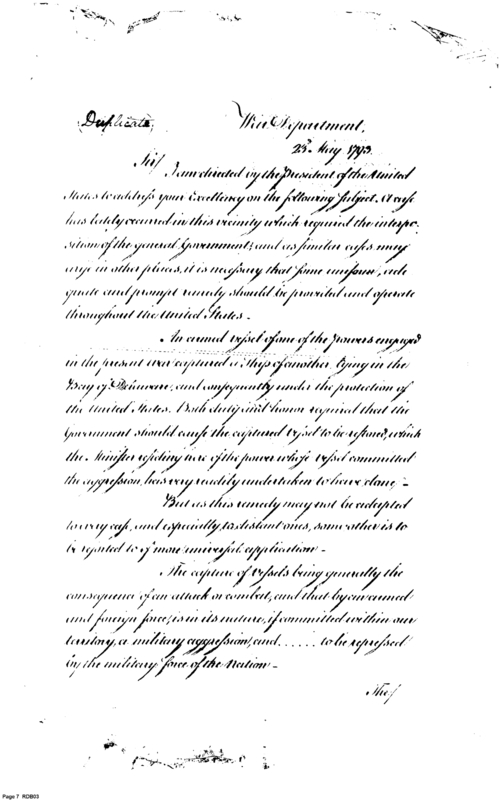 Duplicate,
War Department.
23d May 1793.
Sir/
I am directed by the President of the United
States to address your Excellency on the following subject. A case
has lately occurred in this vicinity which required the interpo-
sition of the general Government; and as similar cases may
arise in other places, it is necessary that some uniform, ade
quate and prompt remedy should be provided and operate
throughout the United States -
An armed vessel of one of the powers engaged
in the present war captured a Ship of another, lying in the
Bay of Delaware, and consequently under the protection of
the United States. Both duty and honor required that the
Government should cause the captured vessel to be restored, which
the Minister residing here of the power whose vessel committed
the aggression, has very readily undertaken to have done. -
But as this remedy may not be adapted
to every case, and especially, to distant ones, some other is to
be resorted to of more universal application -
The capture of vessels being generally the
consequence of an attack or combat, and that by an armed
and foreign force, is in its nature, if committed within our
territory, a military aggression, and ...... to be repressed
by the military force of the Nation -
The/
Page 7 RDB03